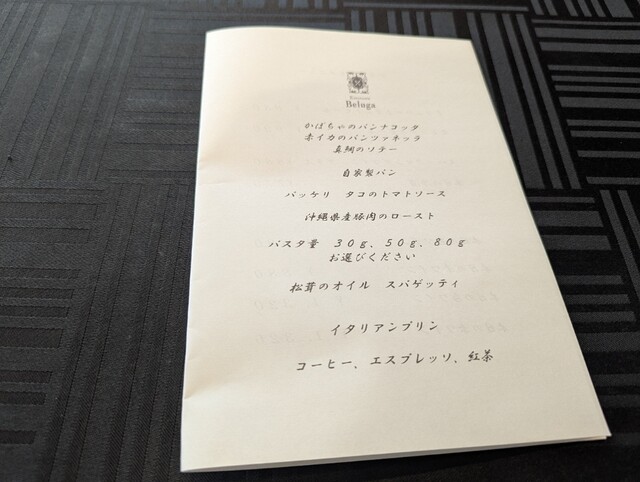 Beluga
かぼちゃのパンナコッタ
赤イカのパンツァネッラ
真鯛のソテー
自家製パン
パッケリ タコのトマトソース
沖縄県産豚肉のロースト
パスタ量 30g、50g、80g
お選びください
松茸のオイル スパゲッティ
イタリアンプリン
コーヒー、エスプレッソ、紅茶